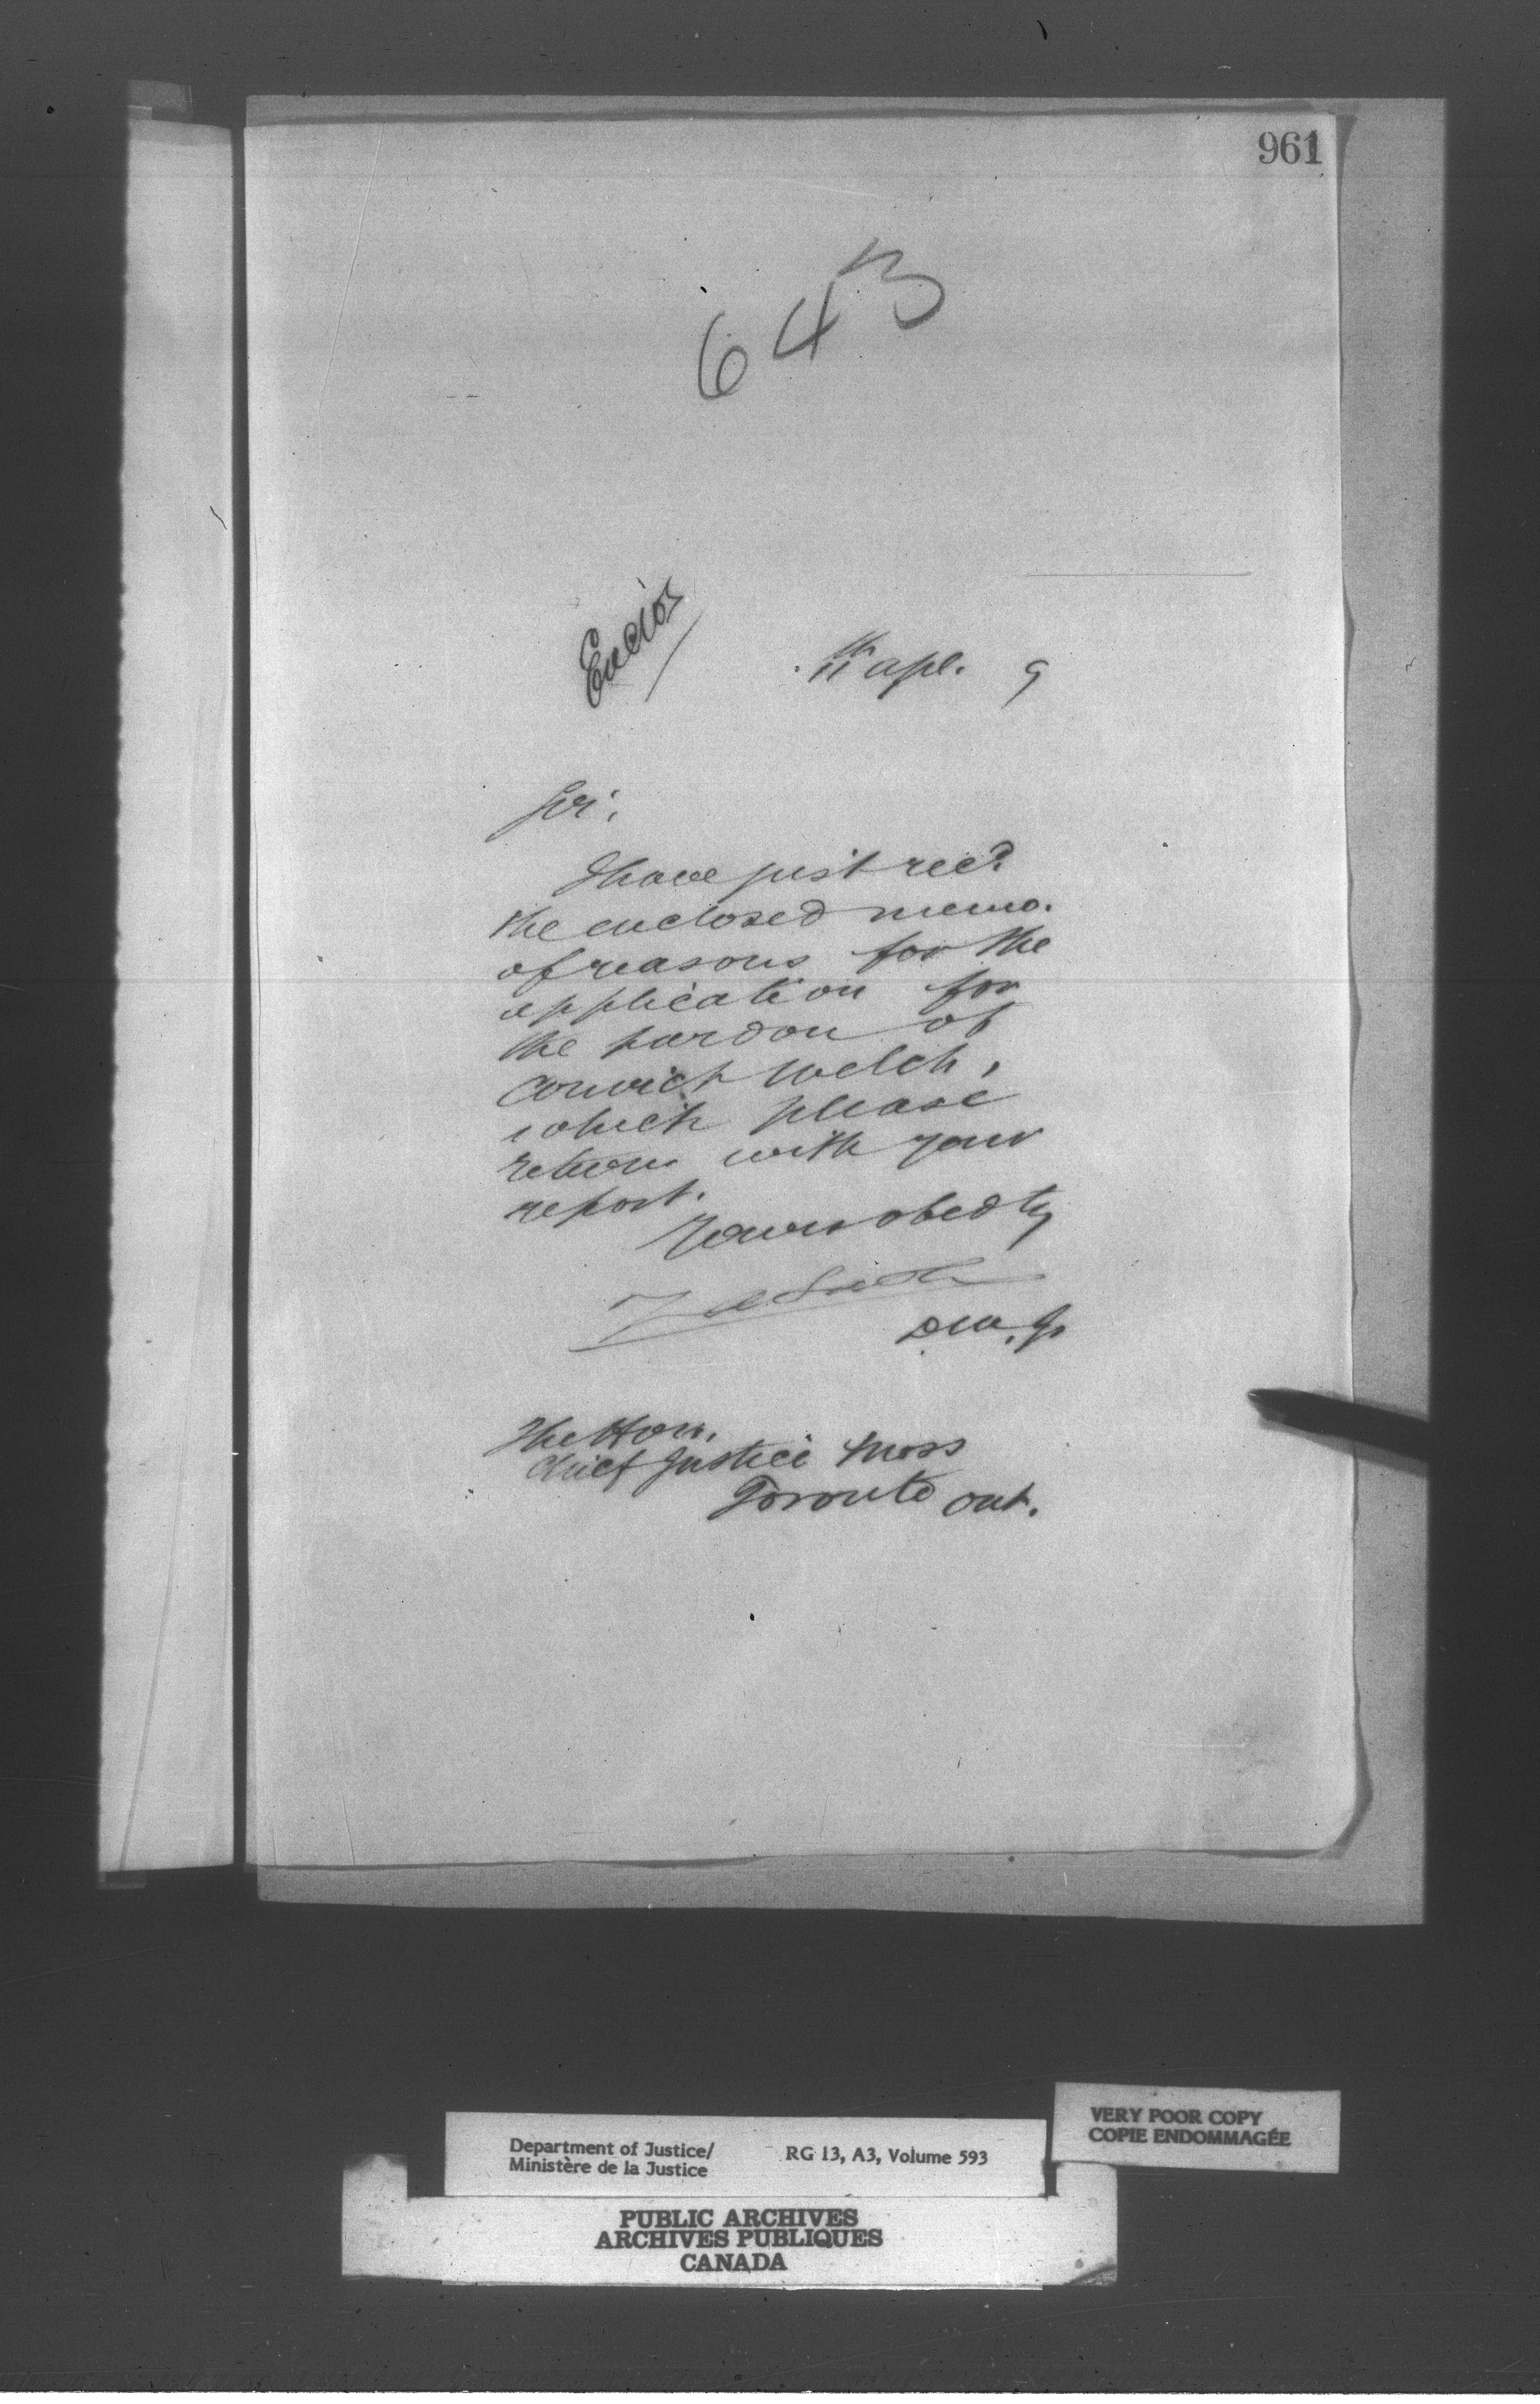 961
643
Enclos
11th apl. 9
Sir,
I have just rec'd
the enclosed memo.
of reasons for the
application for
the pardon of
convict Welch,
which please
return with your
report.
Yours obedtly
D.M.J.
The Hon.
Chief Justice Moss
Toronto Ont.
VERY POOR COPY
COPIE ENDOMMAGÉE
Department of Justice/ RG 13, A3, Volume 593
Ministère de la Justice
PUBLIC ARCHIVES
ARCHIVES PUBLIQUES
CANADA